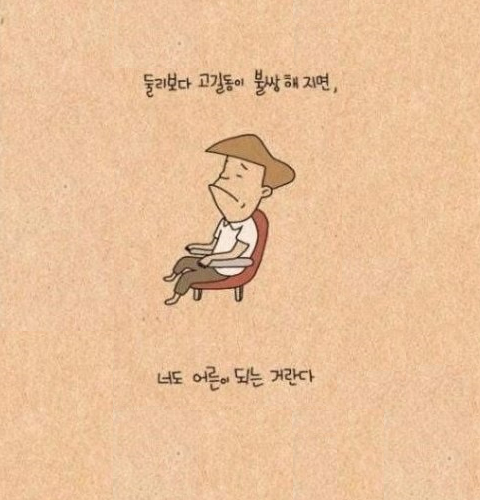 둘리보다 고길동이 불쌍해 지면,
너도 어른이 되는 거란다